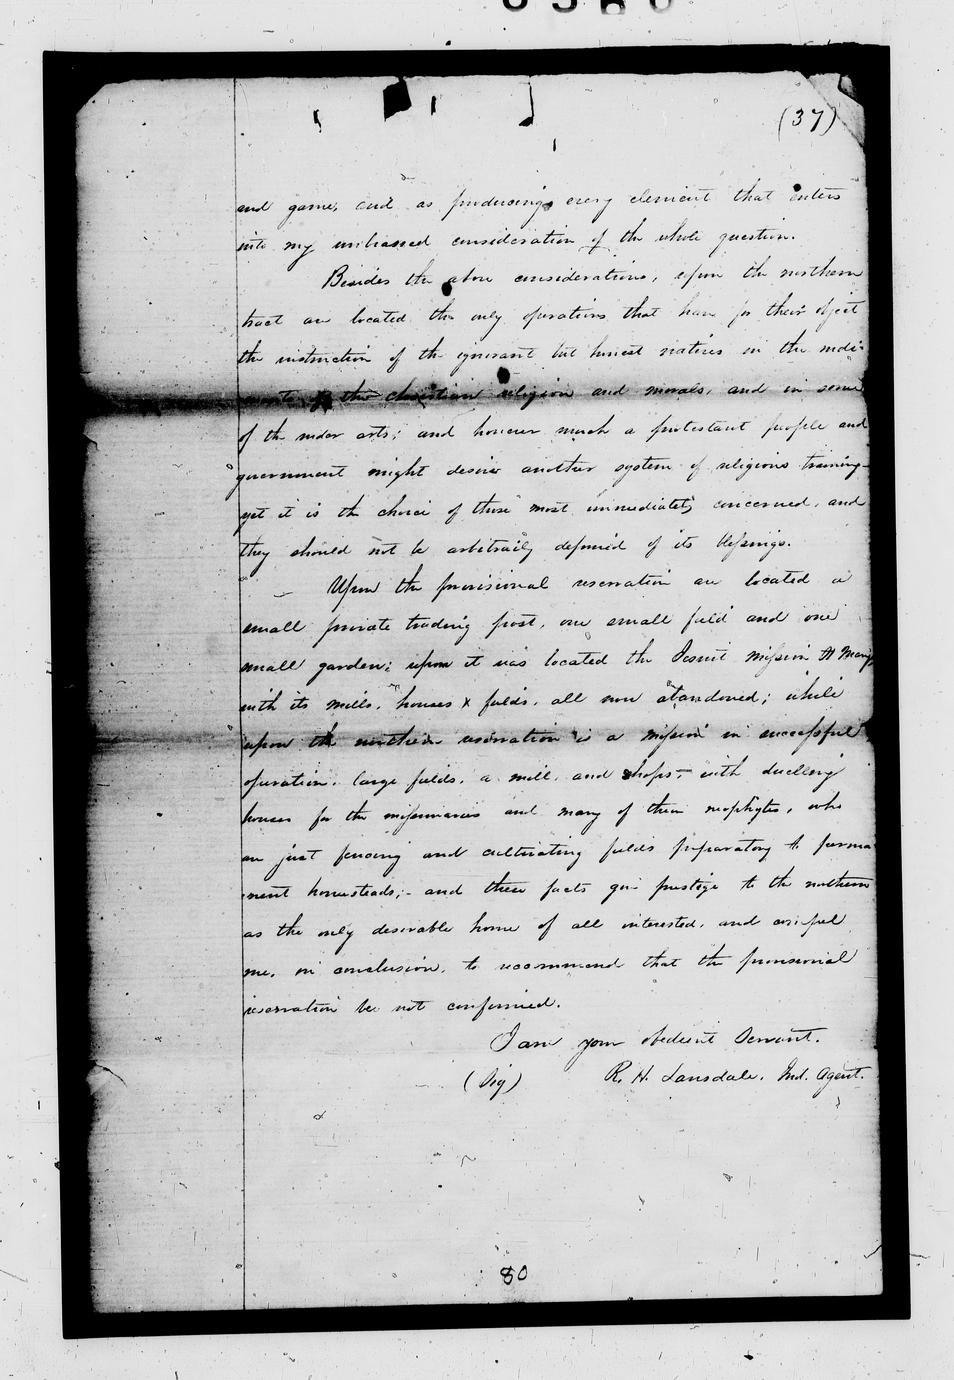 (37)
and game, and as producing every element that enters
into my unbiassed consideration of the whole question.
Besides the above considerations, upon the northern
tract are located the only operations that have for their object
the instruction of the ignorant but honest natives in the rudi-
ments of the christian religion and morals, and in some
of the ruder arts; and however much a protestant people and
government might desire another system of religious training-
yet it is the choice of those most immediately concerned, and
they should not be arbitraily deprived of its blessings.
Upon the provisional reservation are located a
small private trading post, one small field and one
small garden; upon it was located the Jesuit mission St Marys
with its mills, houses & fields, all now abandoned; while
upon the northern reservation is a mission in successful
operation, large fields, a mill, and shops, with dwelling
houses for the missionaries and many of their neophytes, who
are just fencing and cultivating fields preparatory to perma
nent homesteads;- and these facts give prestige to the northern
as the only desirable home of all interested, and compel
me, in conclusion, to recommend that the provisional
reservation be not confirmed.
I am your obedient Servant.
(Sig) R. H. Lansdale, Ind. Agent.
80